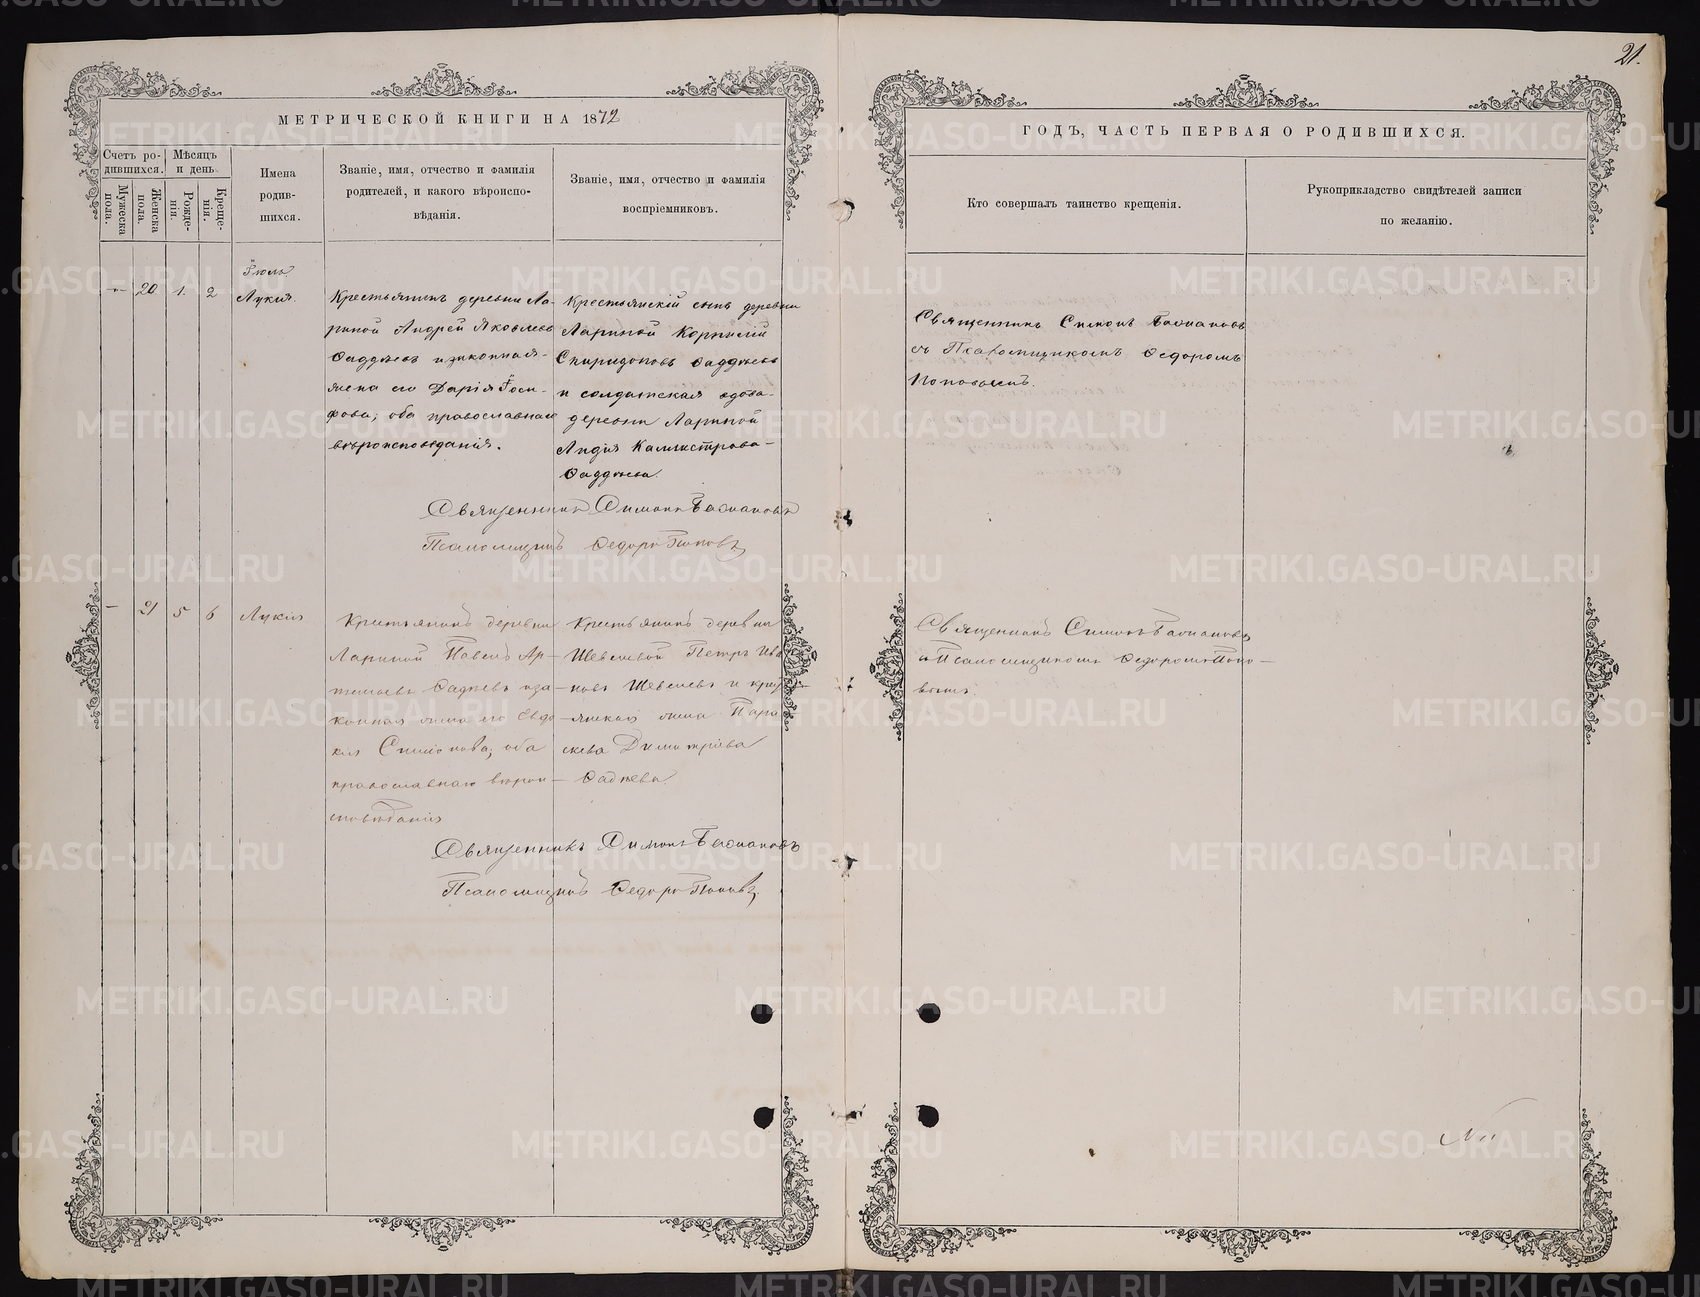 21.
МЕТРИЧЕСКОЙ КНИГИ НА 1872
ГОДЪ, ЧАСТЬ ПЕРВАЯ О РОДИВШИХСЯ.
Счетъ ро-
дившихся.
Мужеска
пола.
Женска
пола.
Мѣсяцъ
и день.
Рожде-
нія.
Креще-
нія.
Имена
родив-
шихся.
Званіе, имя, отчество и фамилія
родителей, и какого вѣроиспо-
вѣданія.
Званіе, имя, отчество и фамилія
воспріемниковъ.
Кто совершалъ таинство крещенія.
Рукоприкладство свидѣтелей записи
по желанію.
Іюль
— 20 1. 2 Лукія.
Крестьянинъ деревни Ла-
риной Андрей Яковлевъ
Фаддѣевъ и законная
жена его Дарія Іоси-
фова, оба православнаго
вѣроисповѣданія.
Крестьянскій сынъ деревни
Лариной Корнилій
Спиридоновъ Фаддѣевъ
и солдатская вдова
деревни Лариной
Лидія Каллистрова
Фаддѣева.
Священникъ Симонъ
съ Псаломщикомъ Ѳедоромъ
Поповымъ.
Священникъ Симонъ
Псаломщикъ Ѳедоръ Поповъ
— 21 5 6 Лукія
Крестьянинъ деревни
Лариной Павелъ Ар-
темьевъ Фадѣевъ и за-
конная жена его Евдо-
кія Симонова, оба
православнаго вѣрои-
сповѣданія
Крестьянинъ деревни
Шевелевой Петръ Ива-
новъ Шевелевъ и крест-
янская жена Пара-
скева Димитріева
Фадѣева
Священникъ Симонъ
и Псаломщикомъ Ѳедоромъ Попо-
вымъ
Священникъ Симонъ
Псаломщикъ Ѳедоръ Поповъ.
METRIKI.GASO-URAL.RU